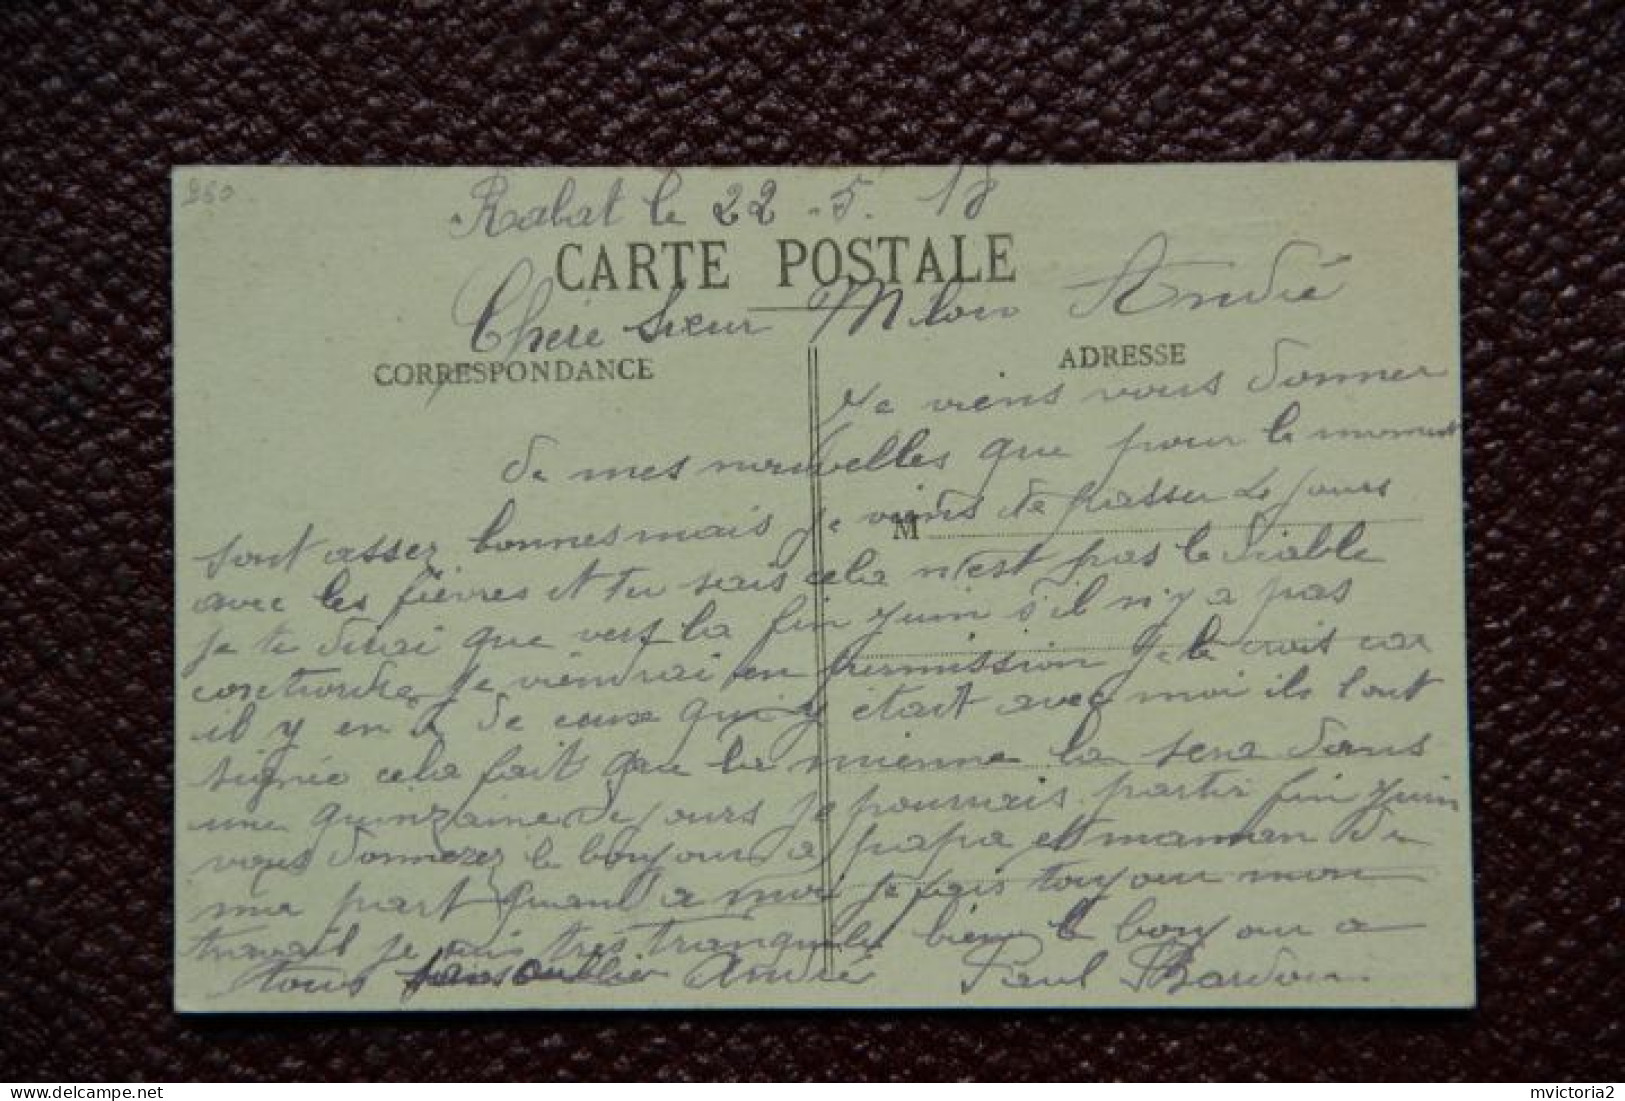 250
Rabat le 22 . 5 . 18
CARTE POSTALE
Chère Sœur Mlou André
CORRESPONDANCE
ADRESSE
Je viens vous donner
de mes nouvelles que pour le moment
M
sont assez bonnes mais je viens de passer de jours
avec les fièvres et tu sais cela n'est pas le diable
je te dirai que vers la fin juin s'il n'y a pas
contrordre je viendrai en permission je le crois car
il y en a de ceux qui y était avec moi ils l'ont
signée cela fait que la mienne la sera dans
une quinzaine de jours je pourrais partir fin juin
vous donnerez le bonjour a papa et maman de
ma part quant a moi je fais toujour mon
travail je suis très tranquile bien le bonjour a
tous sans oublier André Paul Bardou
mvictoria2